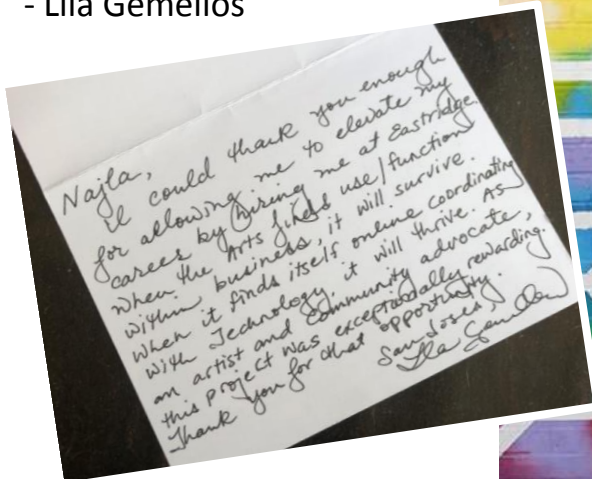 - Lila Gemellos
Najla,
I could thank you enough
for allowing me to elevate my
career by hiring me at Eastridge.
When the Arts finds use/function
within business, it will survive.
When it finds itself online coordinating
with Technology, it will thrive. As
an artist and community advocate,
this project was exceptionally rewarding.
Thank you for that opportunity.
San Jose's,